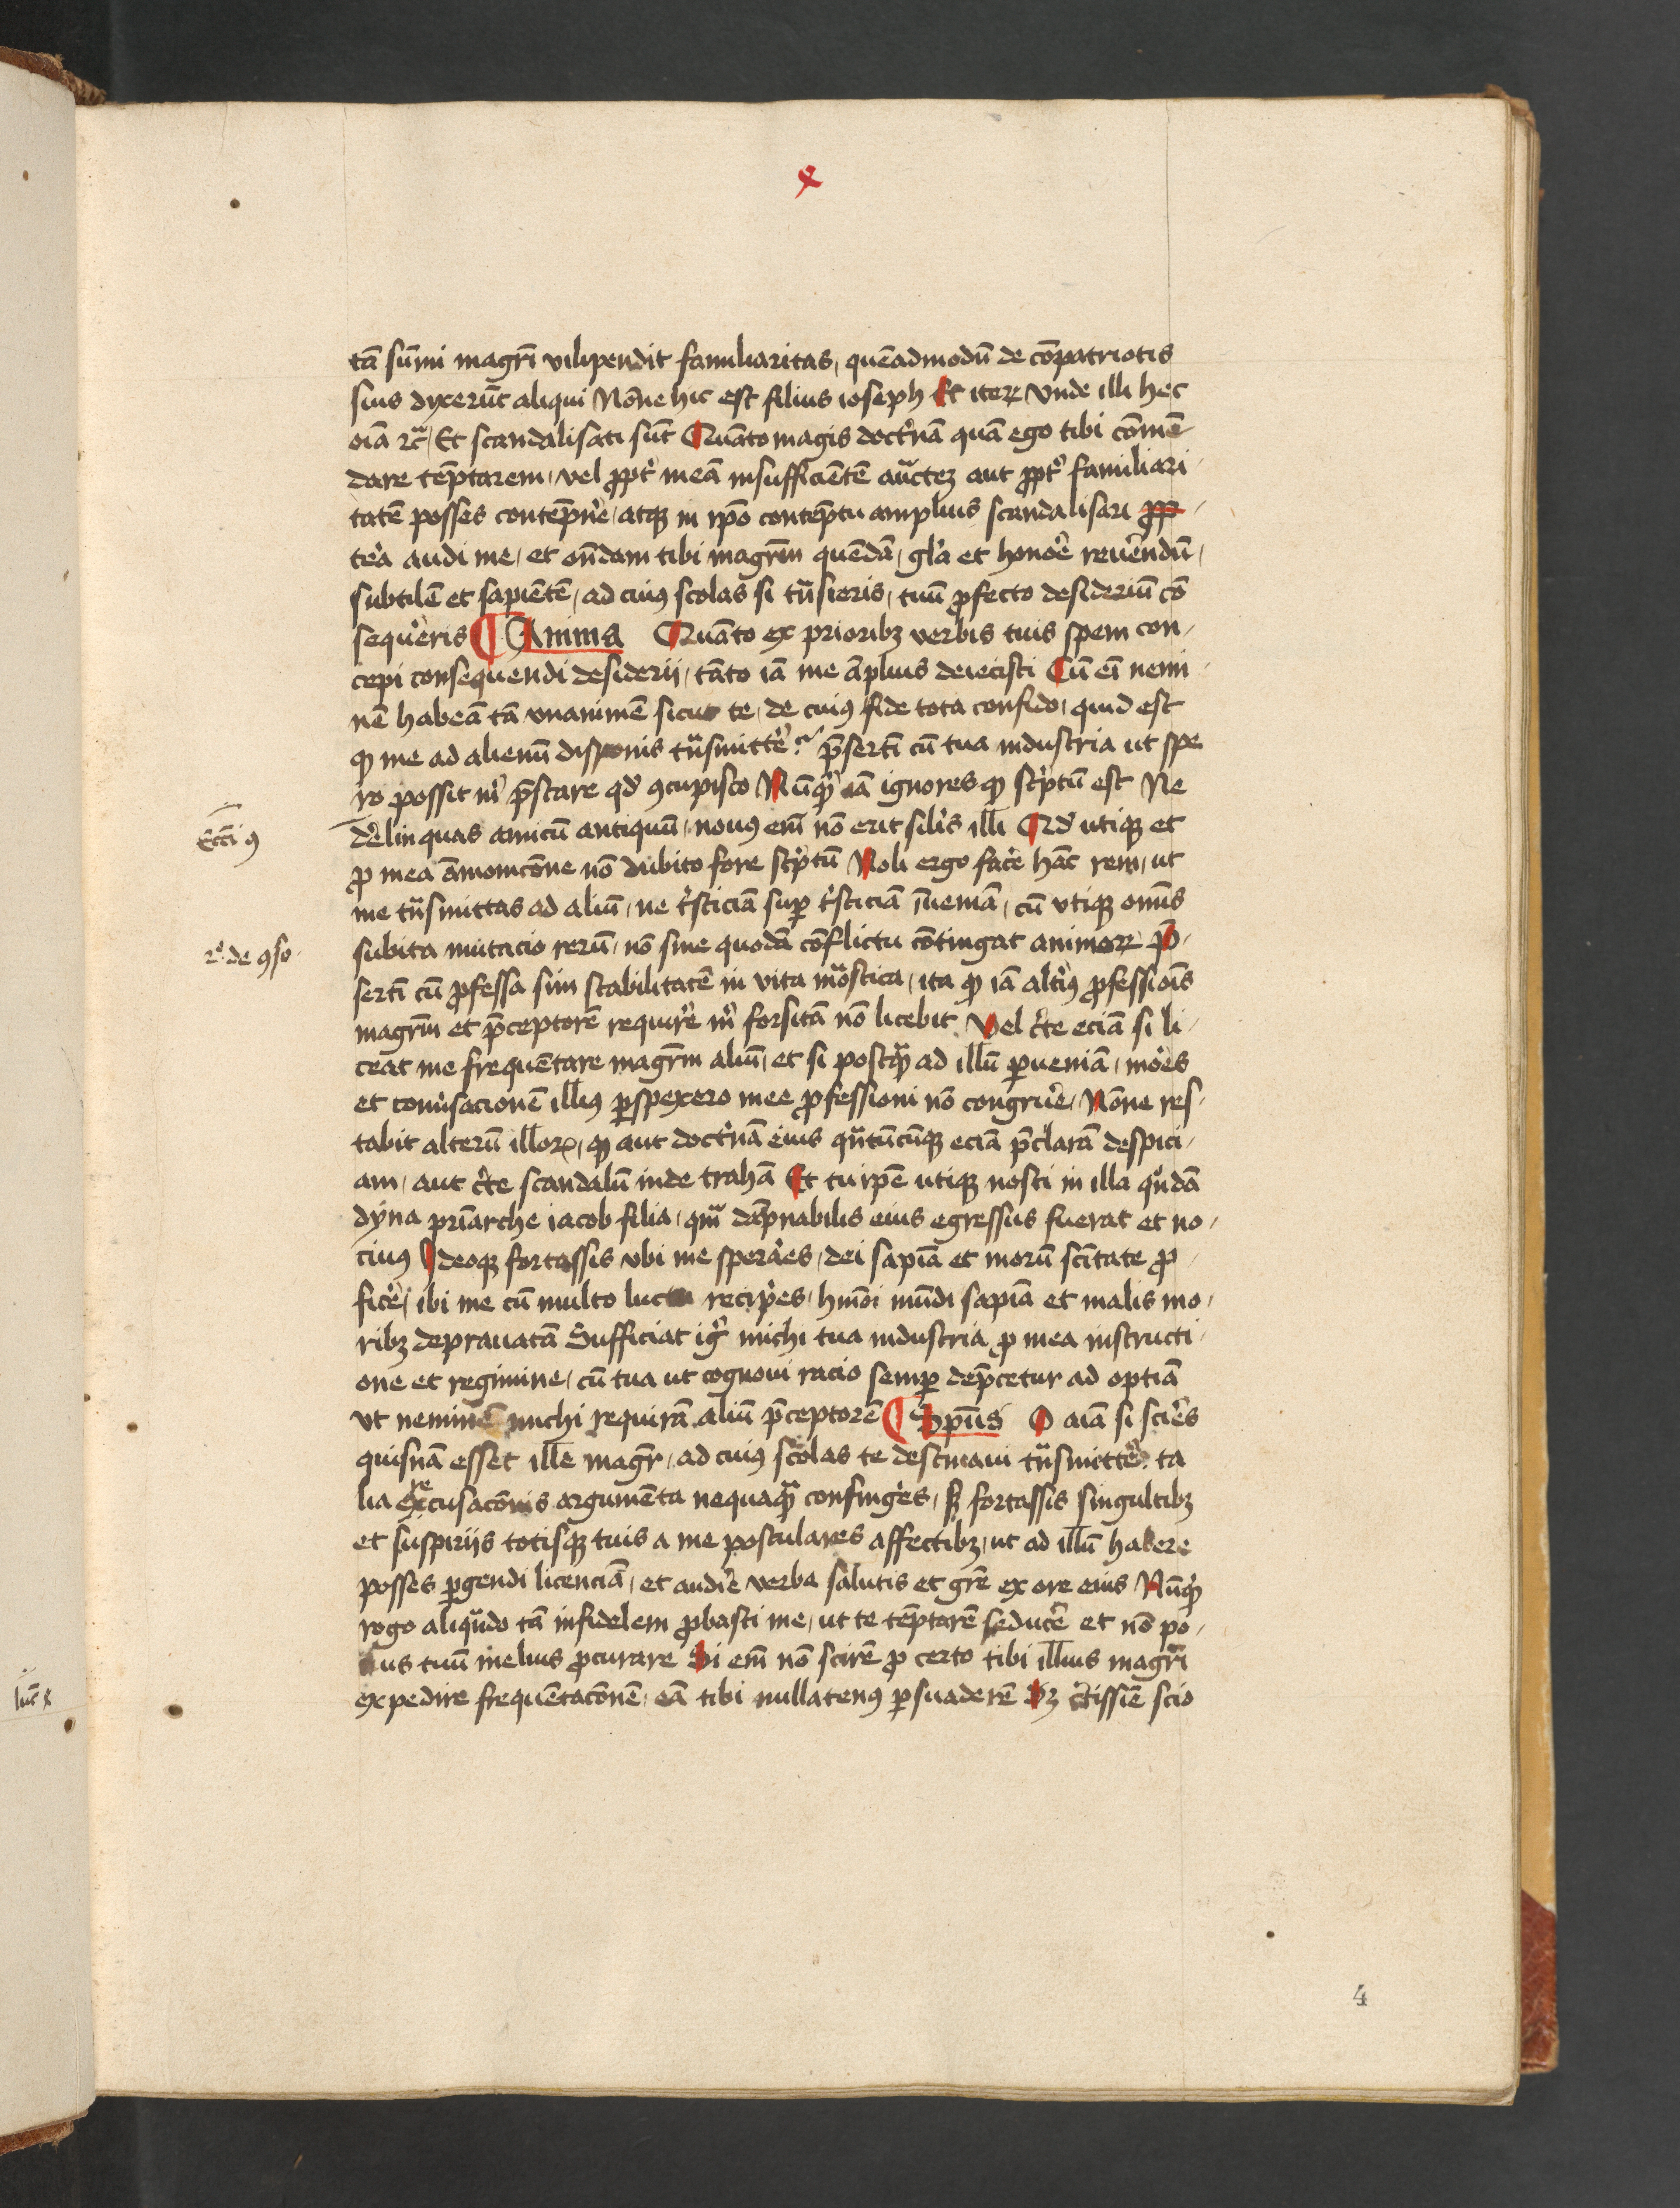 x
tā sūmi magrī vilipendit familiaritas, quēadmodū de cōpatriotis
suis dyxerūt aliqui Nōne hic est filius ioseph Et iterꝝ Vnde illi hec
oīa ⁊cͣ / Et scandalisati sūt Quāto magis doctͥnā quā ego tibi cōmē-
dare tēptarem, vel ꝓptͥ meā insufficiētē auctez aut ꝓptͥ familiari-
tatē posses contēpnͤe, atqꝫ in ip̄o contēptu amplius scandalisari ꝓp-
tͤea audi me, et on̄dam tibi magrm̄ quēdā, glͥa et honoͤe reuͤendū,
subtilē et sapiētē, ad cuiꝰ scolas si tͣnsieris, tuū ꝓfecto desideriū cō
sequͤeris Anima Quāto ex prioribꝫ verbis tuis spem con-
cepi consequendi desiderij, tāto iā me āplius deiecisti Cū eī nemi-
nē habeā tā vnanimē sicut te, de cuiꝰ fide tota confido, quid est
ꝙ me ad alienū disponis tͣnsmittͤe? p̄sertī cū tua industria ut spe
ro possit mͥ p̄stare qd̓ ꝯcupisco Nūqͥd iā ignores ꝙ scͥptū est Ne
dͤelinquas amicū antiquū, nouꝰ em̄ nō erit silͥs illi Qd̓ utiqꝫ et
ꝓ mea āmonicōne nō dubito fore scͥptū Noli ergo facͤe hāc rem, ut
me tͣnsmittas ad aliū, ne tͥsticiā suꝑ tͥsticiā īueniā, cū vtiqꝫ omīs
subita mutacio rerū, nō sine quodā cōflictu cōtingat animoꝝ P̄-
sertī cū ꝓfessa sim stabilitatē in vita mͦastica, ita ꝙ iā altͥiꝰ ꝓfessiōis
magrm̄ et p̄ceptorē requirͤe mͥ forsitā nō licebit Vel cͤte eciā si li-
ceat me frequētare magrm̄ aliū, et si postqͣ ad illū ꝑueniā, moͤes
et conuͤsacionē illiꝰ ꝑspexero mee ꝓfessioni nō congruͤe, Nōne res-
tabit alterū illoꝝ, ꝙ aut doctͥnā eius qͣntūcūqꝫ eciā p̄clarā despici-
am, aut cͤte scandalū inde trahā Et tu ip̄e utiqꝫ nosti in illa qͦndā
dyna priārche iacob filia, qͣm dāpnabilis eius egressus fuerat et no-
ciuꝰ Ideoqꝫ fortassis vbi me sperāes, dei sapīa et morū sc̄itate ꝓ-
ficͤe, ibi me cū multo luctu recipͤes, hm̄oi mūdi sapīa et malis mo-
ribꝫ deprauatā Sufficiat igͥ michi tua industria ꝓ mea instructi-
one et regimine, cū tua ut cognoui racio semꝑ dep̄cetur ad optīa
vt neminē michi requirā aliū p̄ceptorē Sp̄us O aīa si scirͤes
quisnā esset ille magr̄, ad cuiꝰ scolas te destinaui tͣnsmittͤe, ta
lia excusacōnis argumēta nequaqͣ confingͤes, sꝫ fortassis singultibꝫ
et suspirijs totisqꝫ tuis a me postulares affectibꝫ, ut ad illū habere
posses ꝑgendi licenciā, et audirͤe verba salutis et grē ex ore eius Nūqͥd
rogo aliqͣndo tā infidelem ꝓbasti me, ut te tēptarē seducͤe et nō po-
tius tuū melius ꝓcurare Si em̄ nō scirē ꝓ certo tibi illius magrī
expedire frequētacōnē, eā tibi nullatenꝰ ꝑsuaderē Sꝫ cͤtissīe scio
Eccī 9
2º de ꝯso.
luc̄ x
4